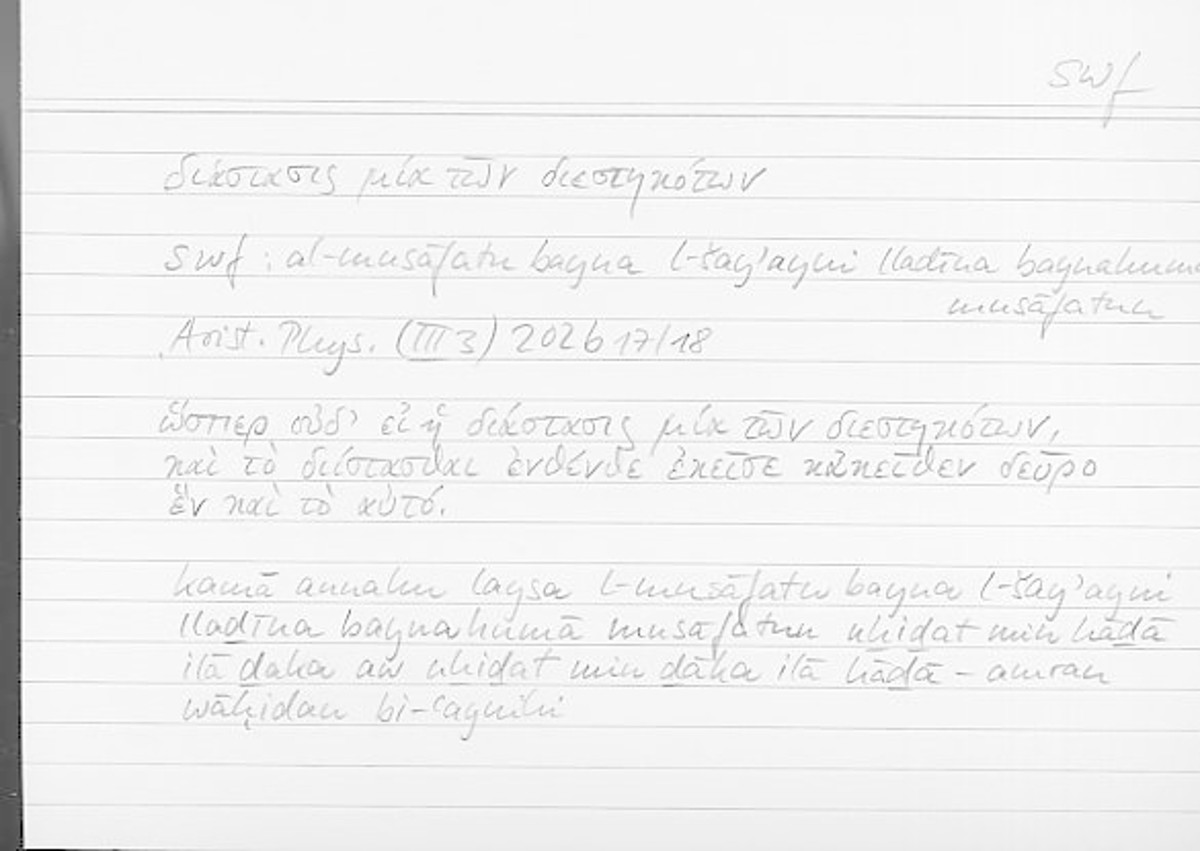 swf
διάστασις μία τῶν διεστηκότων
swf : al-musāfatu bayna l-šayʾayni lladīna baynahumā
musāfatun
Arist. Phys. (III 3) 202b 17/18
ὥσπερ οὐδ’ εἰ ἡ διάστασις μία τῶν διεστηκότων,
καὶ τὸ διίστασθαι ἐνθένδε ἐκεῖσε κἀκεῖθεν δεῦρο
ἓν καὶ τὸ αὐτό.
kamā annahu laysa l-musāfatu bayna l-šayʾayni
lladīna baynahumā musāfatun uḫiḏat min hāḏā
ilā ḏāka aw uḫiḏat min ḏāka ilā hāḏā – amran
wāḥidan bi-ʿaynihi